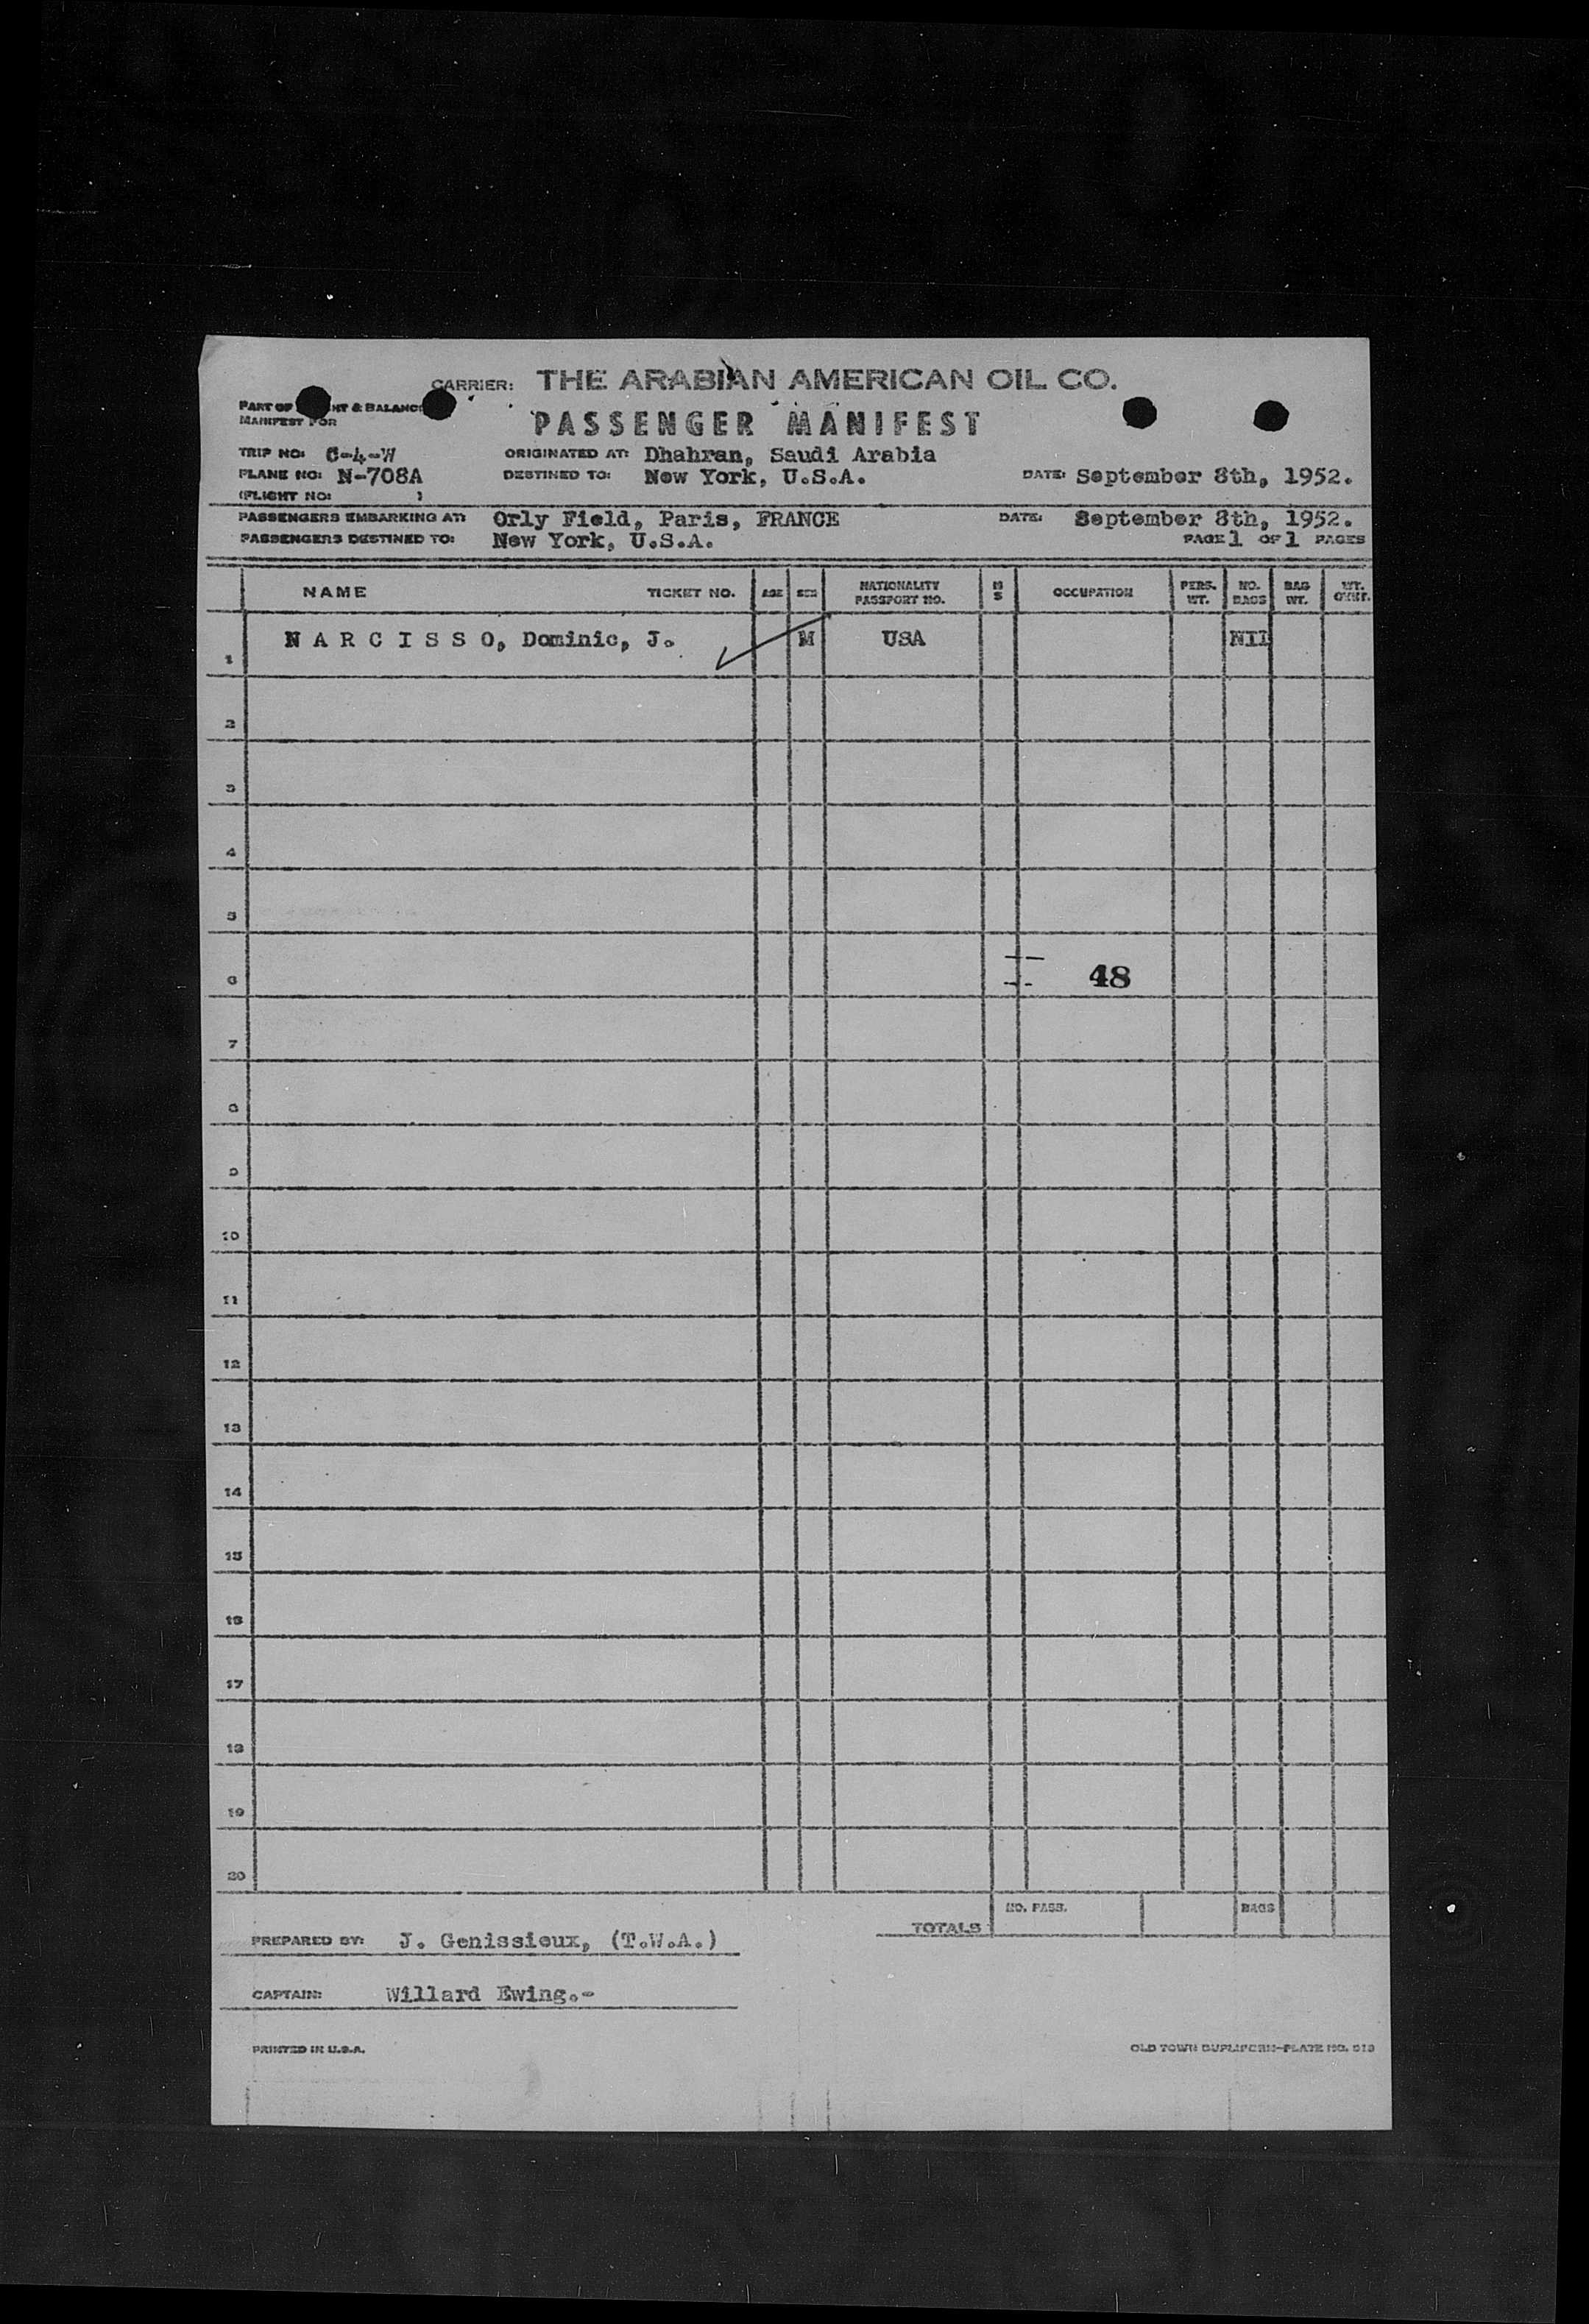 CARRIER: THE ARABIAN AMERICAN OIL CO.
PART OF HT & BALANC
MANIFEST FOR
PASSENGER MANIFEST
TRIP NO: C-4-W ORIGINATED AT: Dhahran, Saudi Arabia
PLANE NO: N-708A DESTINED TO: New York, U.S.A. DATE: September 8th, 1952.
(FLIGHT NO: )
PASSENGERS EMBARKING AT: Orly Field, Paris, FRANCE DATE: September 8th, 1952.
PASSENGERS DESTINED TO: New York, U.S.A. PAGE 1 OF 1 PAGES
NAME TICKET NO. AGE SEX NATIONALITY PASSPORT NO. M S OCCUPATION PERS. WT. NO. BAGS BAG WT. WT. OVER.
1 N A R C I S S O, Dominic, J. M USA NIL
2
3
4
5
6 48
7
8
9
10
11
12
13
14
15
16
17
18
19
20
TOTALS NO. PASS. BAGS
PREPARED BY: J. Genissieux, (T.W.A.)
CAPTAIN: Willard Ewing.-
PRINTED IN U.S.A. OLD TOWN DUPLIFORM-PLATE NO.